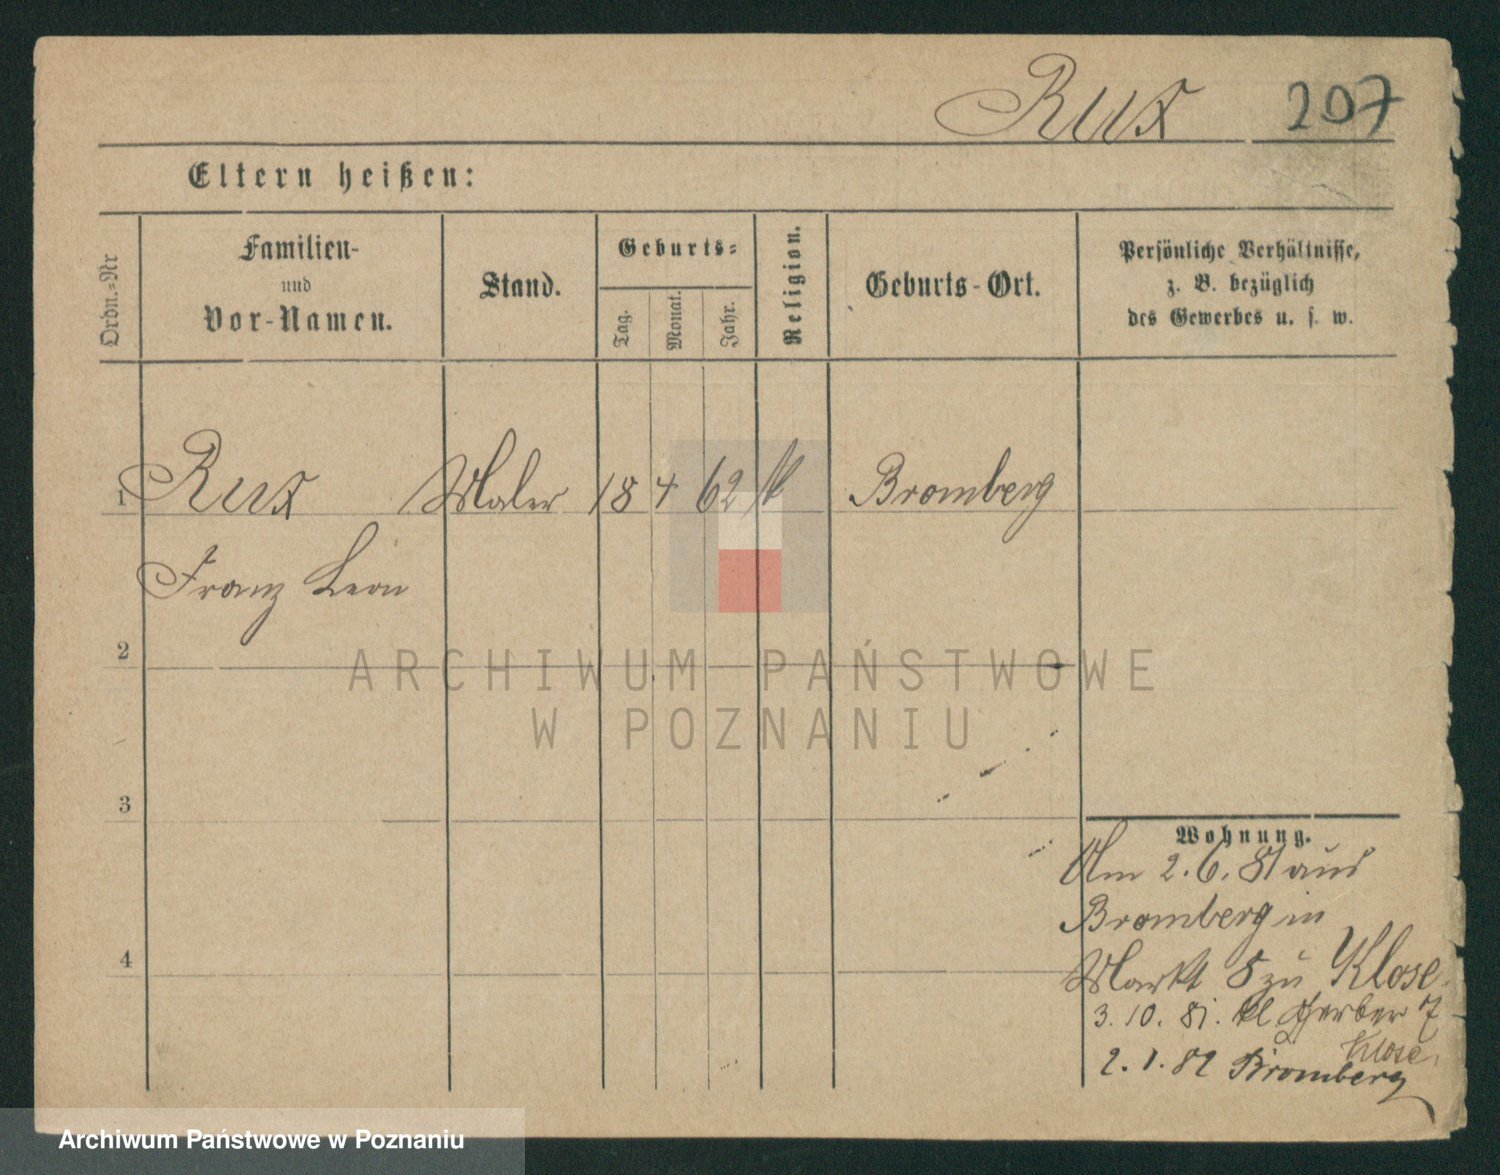 Rux 207
Eltern heißen:
Ordn.-Nr
Familien-
und
Vor-Namen.
Stand.
Geburts-
Tag.
Monat.
Jahr.
Religion.
Geburts-Ort.
Persönliche Verhältnisse,
z. B. bezüglich
des Gewerbes u. s. w.
1 Rux Maler 18 4 62 k Bromberg
Franz Leon
2
ARCHIWUM PAŃSTWOWE
W POZNANIU
3
Wohnung.
Am 2. 6. 81 aus
Bromberg in
Markt 8 zu Klose.
4
3. 10. 81. kl Gerber 7
Klose.
2. 1. 82 Bromberg
Archiwum Państwowe w Poznaniu